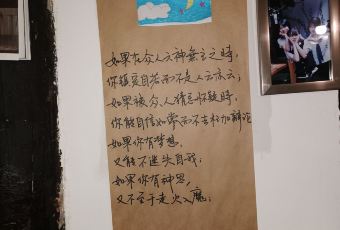 如果在众人六神无主之时，
你镇定自若而不是人云亦云；
如果被众人猜忌怀疑时，
你能自信如常而不去枉加辩论
如果你有梦想，
又能不迷失自我；
如果你有神思，
又不至于走火入魔；